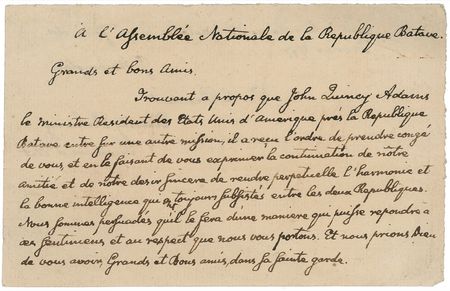 A l'Assemblée Nationale de la Republique Batave.
Grands et bons Amis.
Trouvant a propos que John Quincy Adams
le Ministre Resident des Etats Unis d'Amerique près la Republique
Batave entre sur une autre mission, il a reçu l'ordre de prendre congé
de vous, et en le faisant de vous exprimer la continuation de notre
amitié et de notre desir sincere de rendre perpetuelle l'harmonie et
la bonne intelligence qui ont toujours subsistés entre les deux Republiques.
Nous sommes persuadés qu'il le fera d'une maniere qui puisse repondre a
ces sentimens et au respect que nous vous portons. Et nous prions Dieu
de vous avoir, Grands et Bons amis, dans sa sainte garde.